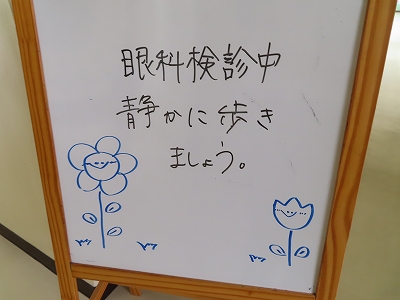 眼科検診中
静かに歩き
ましょう。